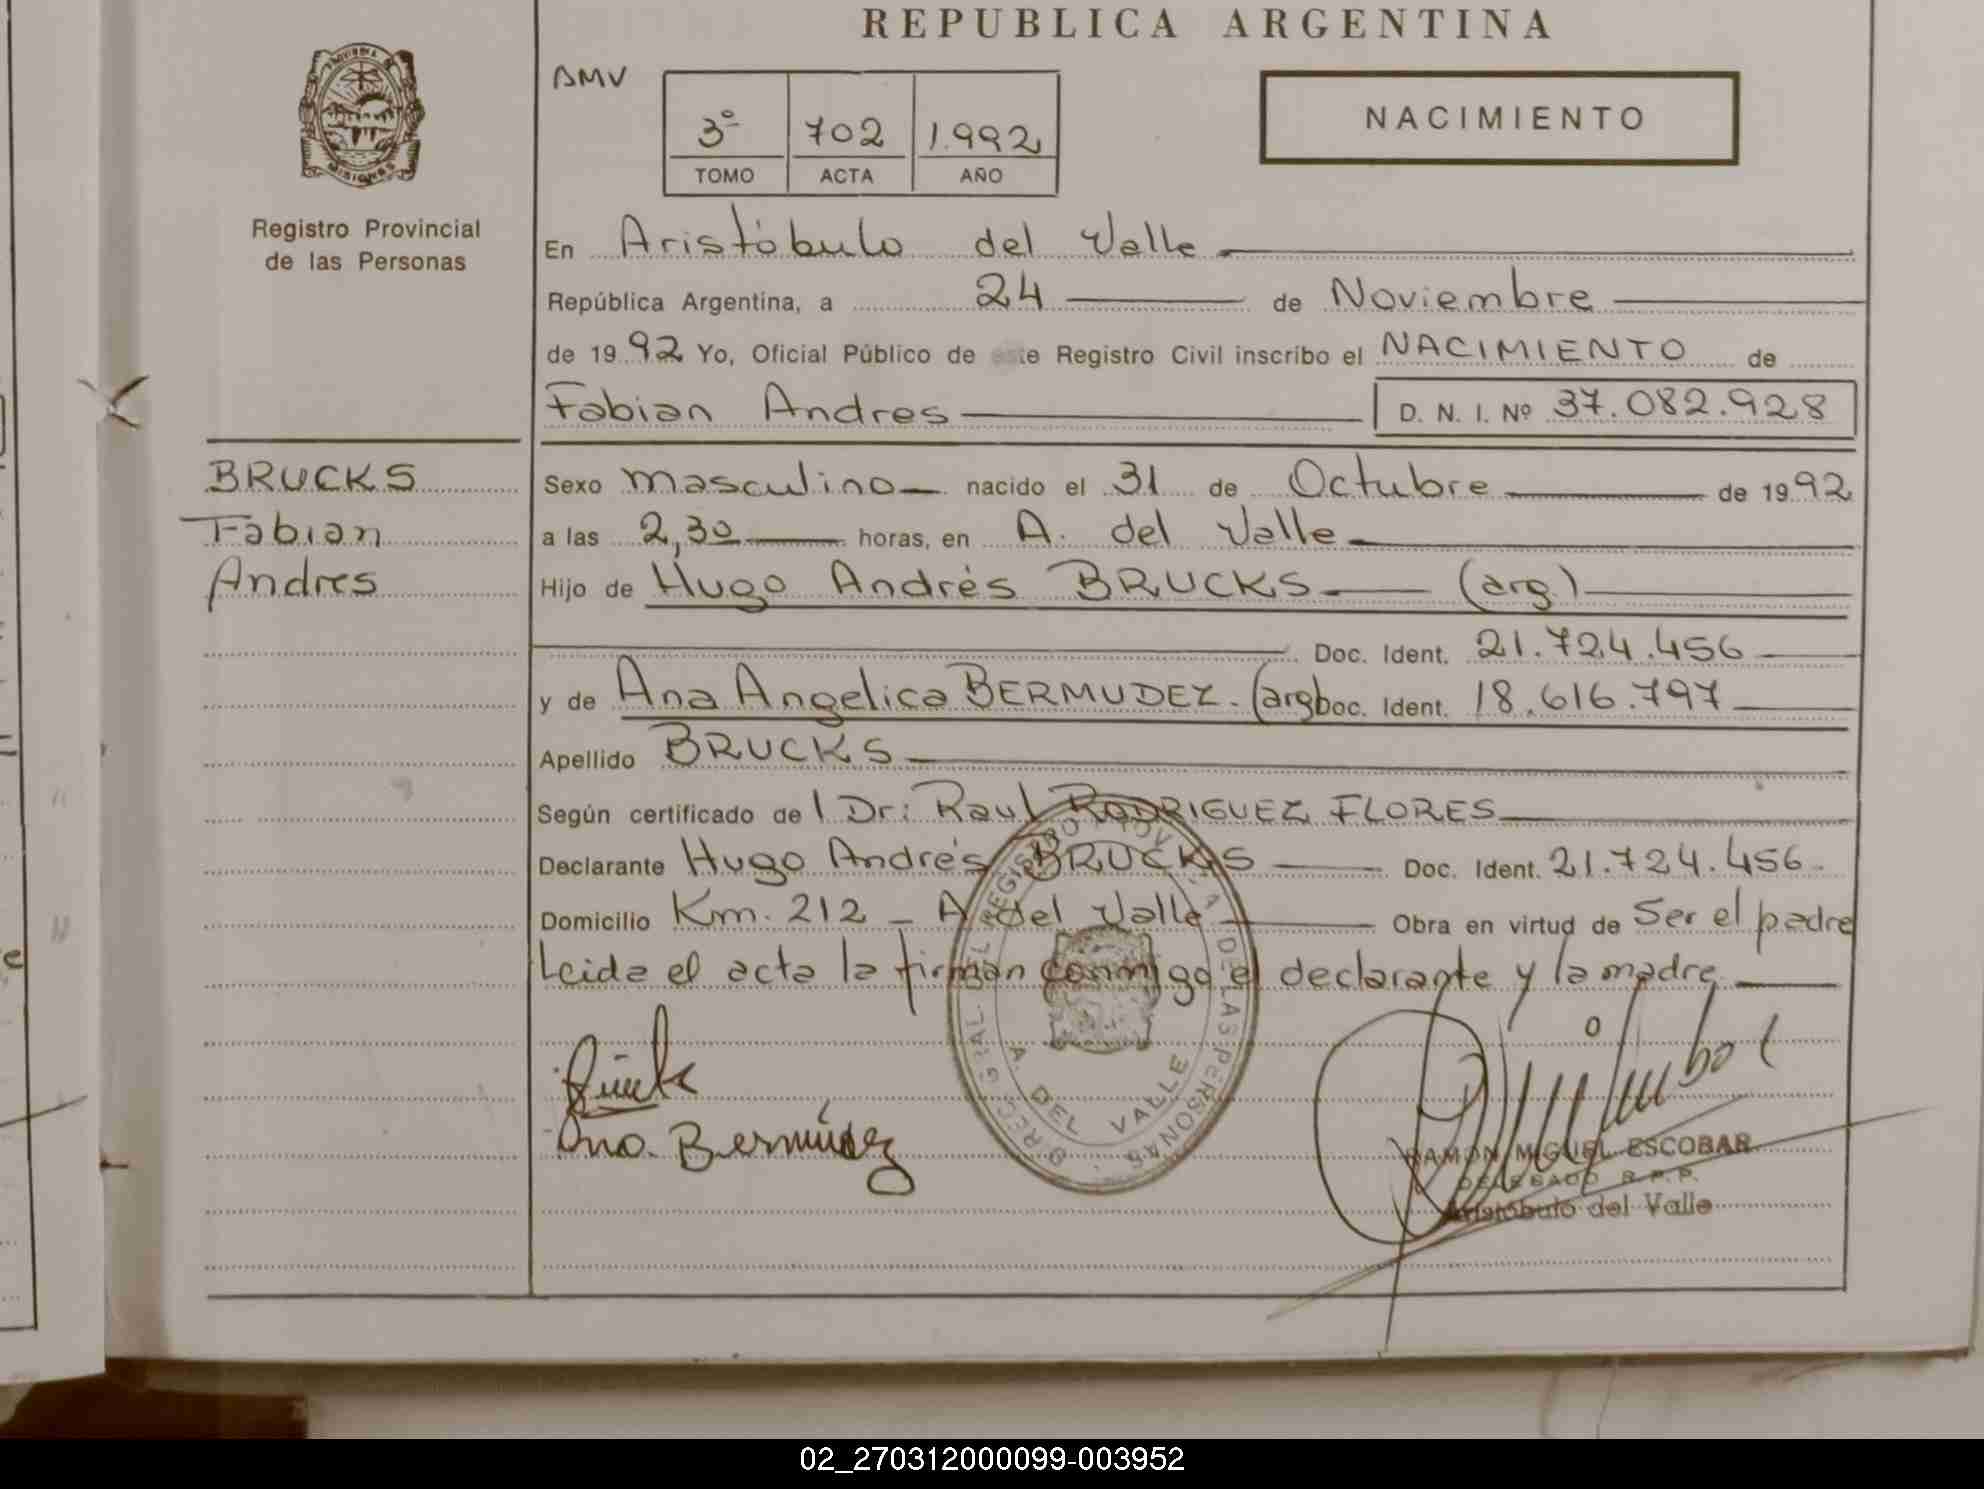 REPUBLICA ARGENTINA
PROVINCIA DE
MISIONES
Registro Provincial
de las Personas
BMV
3º 702 1.992
TOMO ACTA AÑO
NACIMIENTO
En Aristóbulo del Valle
República Argentina, a 24 de Noviembre
de 1992 Yo, Oficial Público de este Registro Civil inscribo el NACIMIENTO de
Fabian Andres D. N. I. Nº 37.082.928
BRUCKS
Fabian
Andres
Sexo masculino nacido el 31 de Octubre de 1992
a las 2,30 horas, en A. del Valle
Hijo de Hugo Andrés BRUCKS (arg.)
Doc. Ident. 21.724.456
y de Ana Angelica BERMUDEZ. (arg) Doc. Ident. 18.616.797
Apellido BRUCKS
Según certificado del Dr: Raul RODRIGUEZ FLORES
Declarante Hugo Andrés BRUCKS Doc. Ident. 21.724.456
Domicilio Km. 212 - A del Valle Obra en virtud de Ser el padre
Leida el acta la firman conmigo el declarante y la madre
A. DEL VALLE
Ana. Bermúdez
RAMON MIGUEL ESCOBAR
DELEGADO R. P. P.
Aristóbulo del Valle
02_270312000099-003952